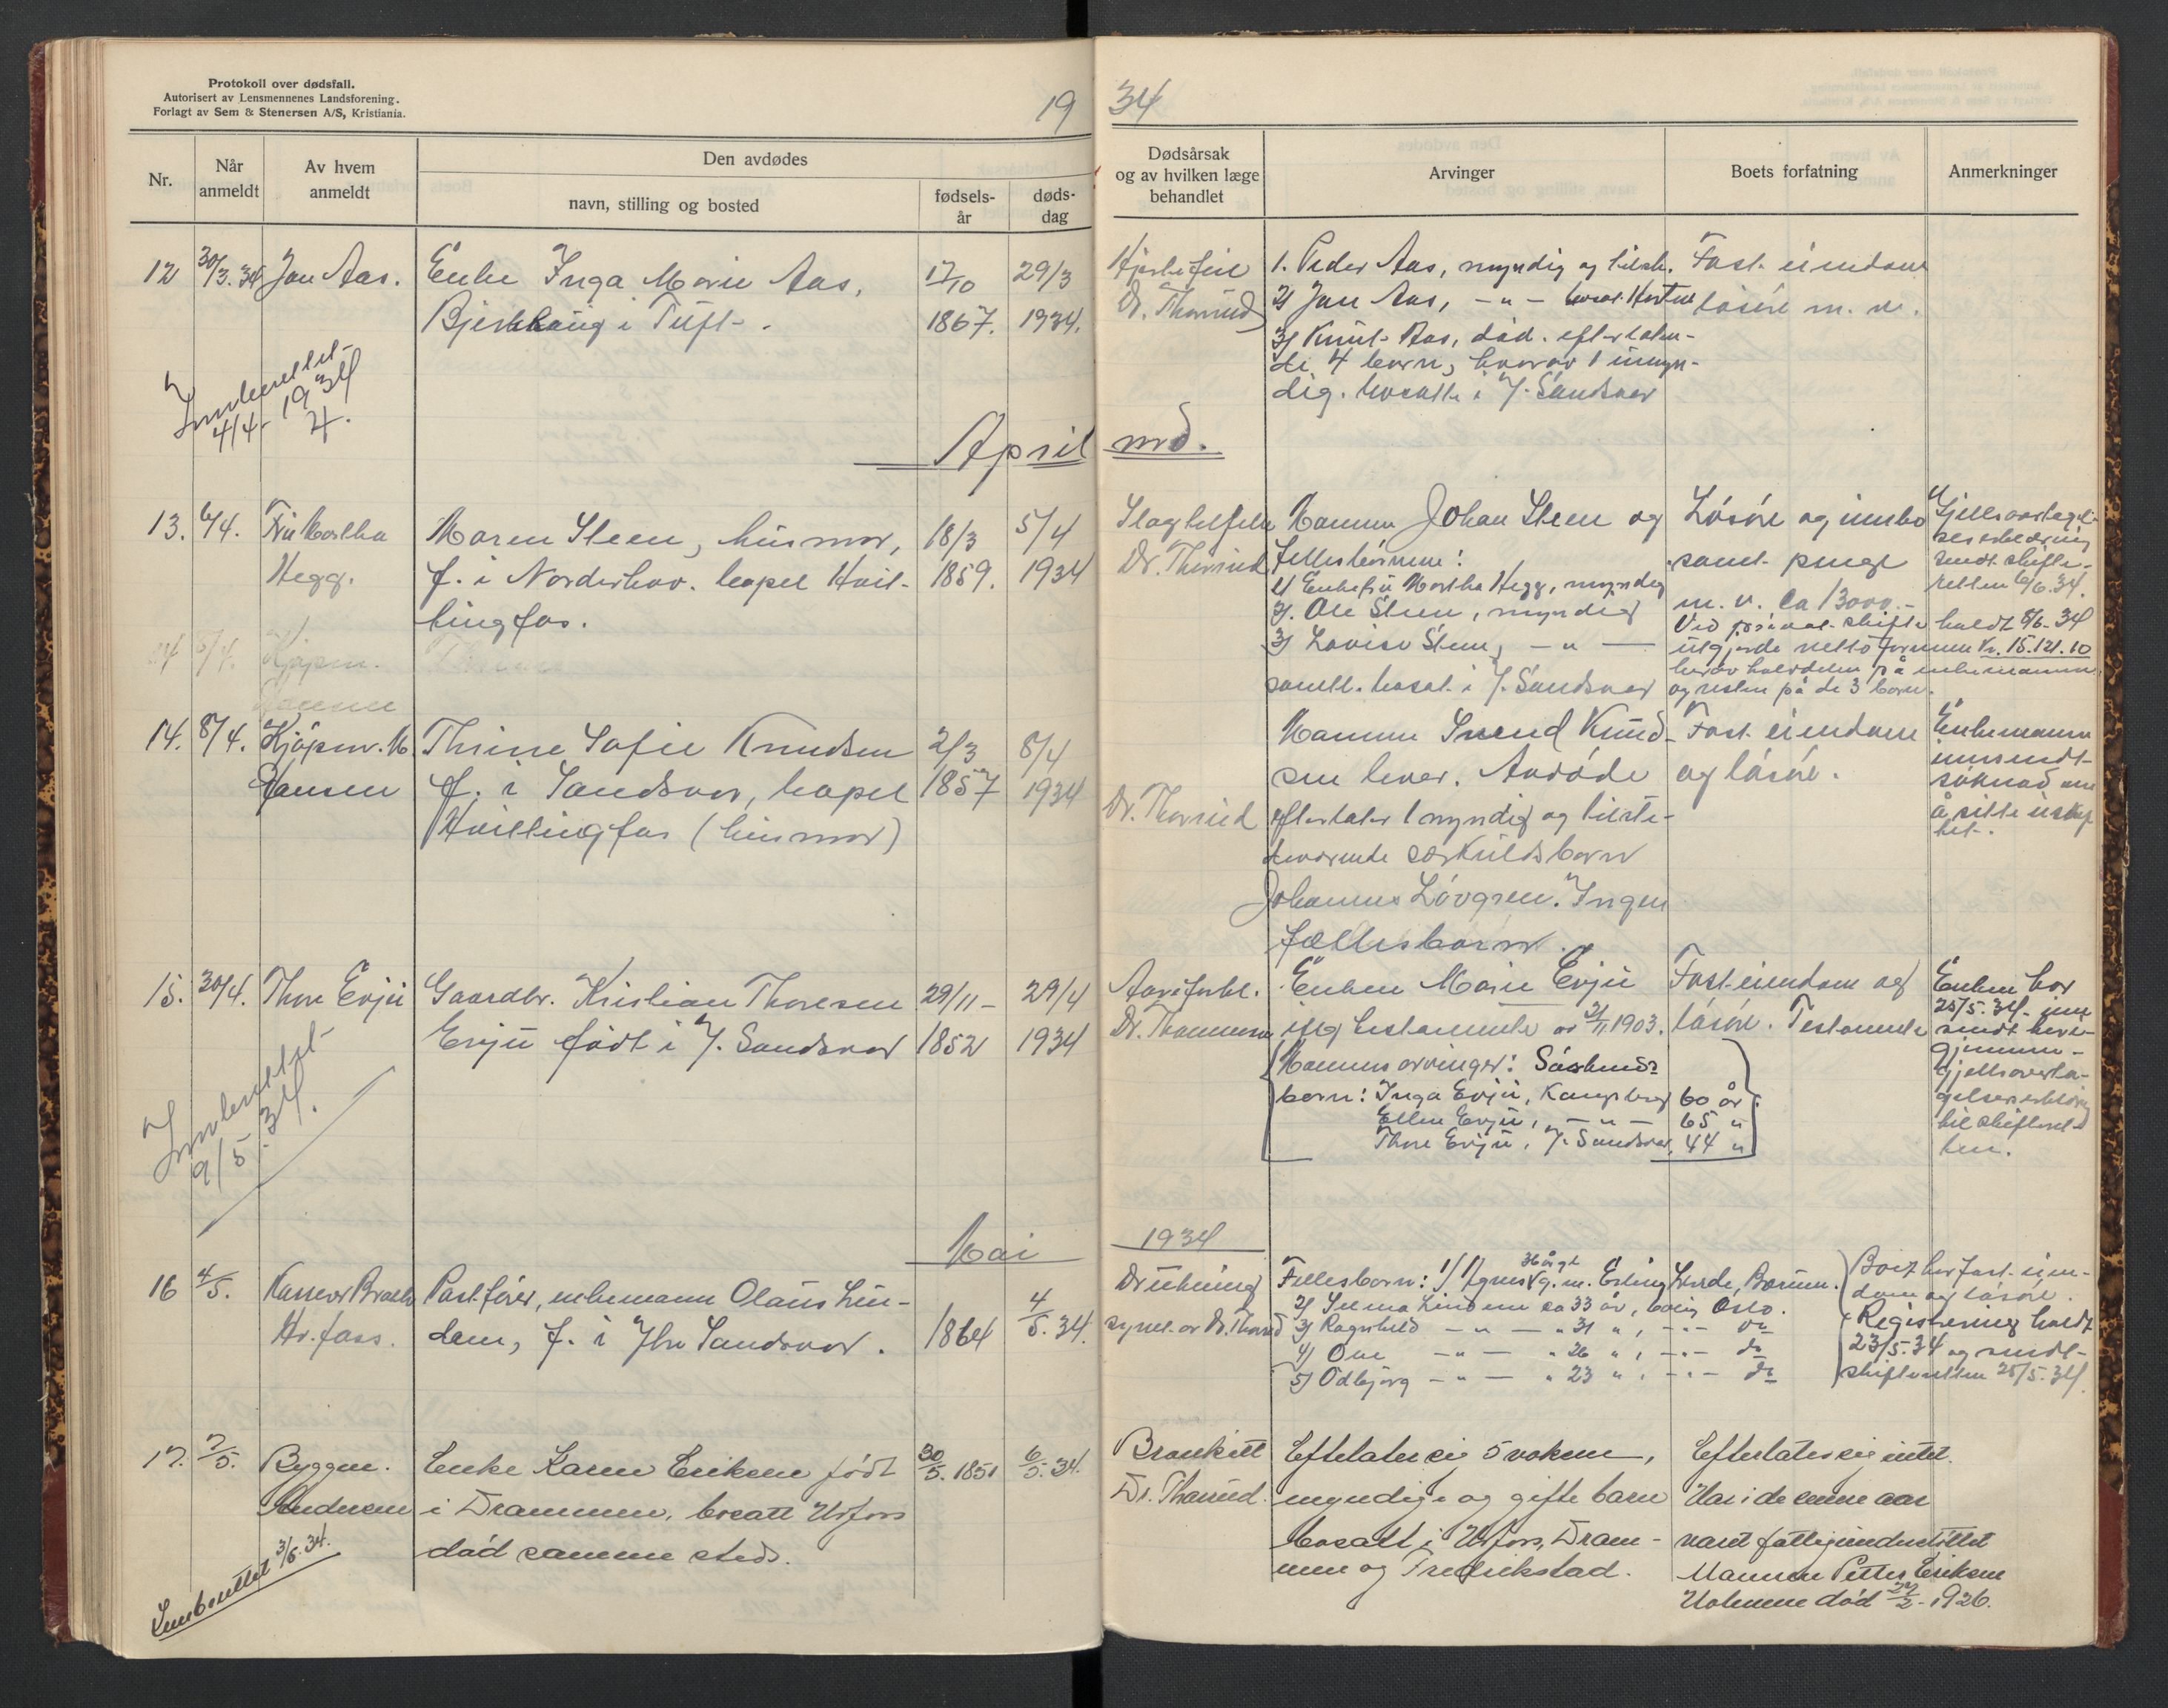 Protokoll over dødsfall.
Autorisert av Lensmennenes Landsforening.
Forlagt av Sem & Stenersen A/S, Kristiania.
19 34
Nr.
Når anmeldt
Av hvem anmeldt
Den avdødes
navn, stilling og bosted
fødsels-år
døds-dag
Dødsårsak og av hvilken læge behandlet
Arvinger
Boets forfatning
Anmerkninger
12 30/3.34 Jan Aas.
Enke Inga Marie Aas,
Bjerkhaug i Tuft.
17/10 1867.
29/3 1934.
Hjertefeil
Dr. Thorrud
1. Peder Aas, myndig og tilst.
2) Jan Aas, -"- bosat Hostvet
3) Knut Aas, död. efterlaten-
de 4 barn, hvorav 1 umyn-
dig. bosatte i Y. Sandsvær
Fast eiendom
løsøre m. v.
Innberettet
4/4- 1934
April md.
13. 6/4. Fru Martha
Hegg.
Maren Steen, husmor,
f. i Norderhov. bopel Hvit-
tingfos.
18/3 1859.
5/4 1934
Slagtilfelle
Dr. Thorrud
Mannen Johan Steen og
fellesbørnene:
1) Enkefru Martha Hegg, myndig
2). Ole Steen, myndig
3) Lovise Steen, -"-
samtl. bosat i Y. Sandsvær
Løsøre og innbo
samt penge
m. v. Ca 13000.-
Ved privat skifte holdt 8/6-34
utgjorde netto formuen Kr. 15.121.10
herav halvdelen på enkemannen
og resten på de 3 barn.
Gjeldsovertagel-
seserklæring
sendt skifte-
retten 6/6.34.
14 8/4. Kjøpm.
Hansen
14. 8/4. Kjøpm. M.
Hansen
Thrine Sofie Knudsen
f. i Sandsvær, bopel
Hvittingfos (husmor)
2/3 1857
8/4 1934
Dr. Thorrud
Mannen Svend Knud-
sen lever. Avdøde
efterlater 1 myndig og tilste-
deværende særkuldsbarn
Johannes Lövgren. Ingen
fellesbarn.
Fast eiendom
og løsøre.
Enkemannen
innsendt
søknad om
å sitte i uskif-
tet.
15. 30/4. Thore Evju
Gaardbr. Kristian Thoresen
Evju født i Y. Sandsvær
29/11- 1852
29/4 1934
Aareforkl.
Dr. Thommesen
Enken Marie Evju
iflg testamente av 2/11 1903.
Mannens arvinger: Særkulds-
barn: Inga Evju, Kongsberg 60 år
Ellen Evju, -"- 65 "
Thore Evju, Y. Sandsvær, 44 "
Fast eiendom og
løsøre. Testamente
Enken har
25/5.34. inn
sendt
gjennem-
gjeldsoverta-
gelseserklæring
til skifteret-
ten.
Innberettet
9/5.34.
Mai 1934
16 4/5. Kasserer Braath
Hv.foss.
Postfører, enkemann Olaus Lin-
dem, f. i Ytre Sandsvær.
1864
4/5.34.
Drukning
synet av Dr. Thorrud
Fellesbarn: 1) Agnes 36 årgl. g. m. Erling Linde, Bærum.
2) Selma Lindem ca 33 år, bolig Oslo.
3) Ragnhild -"- " 31 ", -"- do
4) Ove -"- " 26 ", -"- do
5) Odbjørg -"- " 23 ", -"- do
Boet har fast eien-
dom og løsøre.
Registrering holdt
23/5.34 og sendt
skifteretten 25/5.34.
17. 7/5. Byggm.
Andersen
Enke Karen Eriksen født
i Drammen, bosatt Hvfoss
död samme steds.
30/5. 1851
6/5.34.
Bronkitt
Dr. Thorrud.
Eftelater sig 5 voksne,
myndige og gifte barn
bosatt i Hvfoss, Dram-
men og Fredrikstad.
Efterlater sig intet.
Har i de senere aar
været fattigunderstøttet
Mannen Petter Eriksen
Holmene död 27/2-1926.
Innberettet 3/6.34.